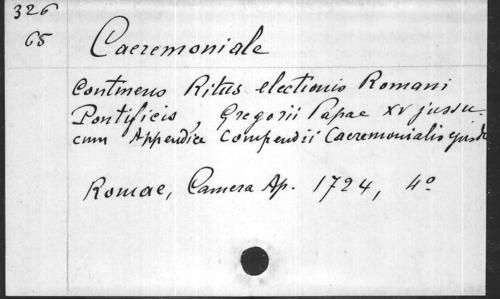 326
65
Caeremoniale
continens Ritus electionis Romani
Pontificis, Gregorii Papae XV jussu
cum Appendice Compendii Caeremonialis ejusde
Romae, Camera Ap. 1724, 4o